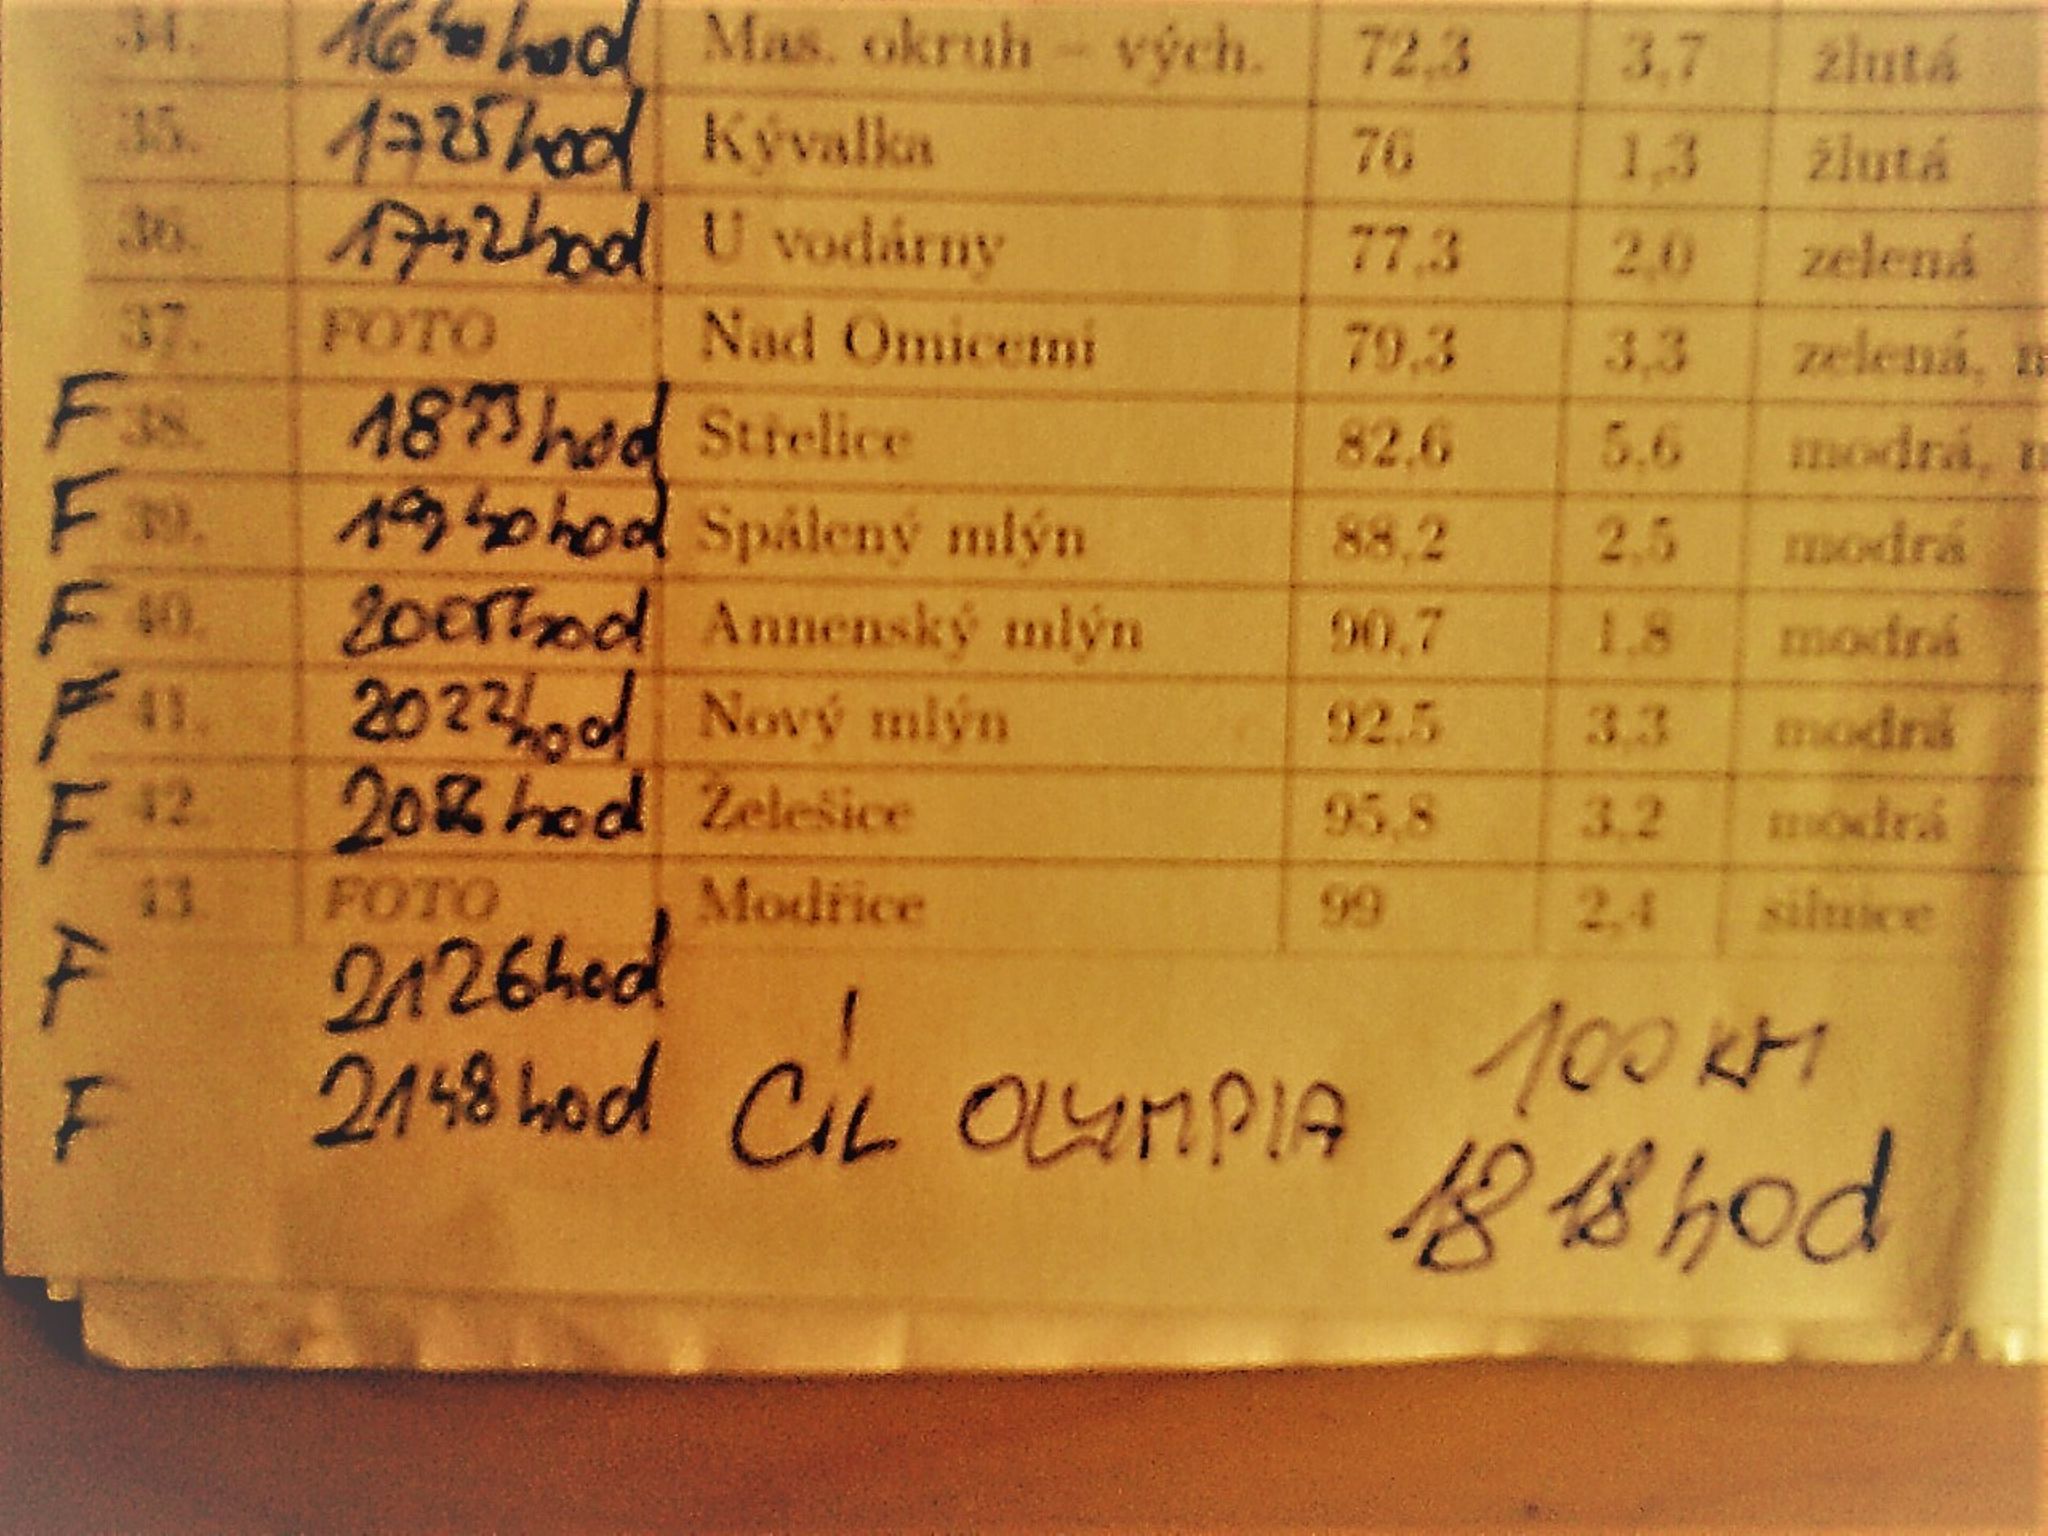 34. 16 40 hod Mas. okruh – vých. 72,3 3,7 žlutá
35. 17 25 hod Kývalka 76 1,3 žlutá
36. 17 42 hod U vodárny 77,3 2,0 zelená
37. FOTO Nad Omicemi 79,3 3,3 zelená,
F 38. 18 33 hod Střelice 82,6 5,6 modrá,
F 39. 19 40 hod Spálený mlýn 88,2 2,5 modrá
F 40. hod Annenský mlýn 90,7 1,8 modrá
F 41. 20 22 hod Nový mlýn 92,5 3,3 modrá
F 42. hod Želešice 95,8 3,2 modrá
43. FOTO Modřice 99 2,4 silnice
F 21 26 hod
F 21 48 hod CÍL OLYMPIA 100 KM
18 18 hod